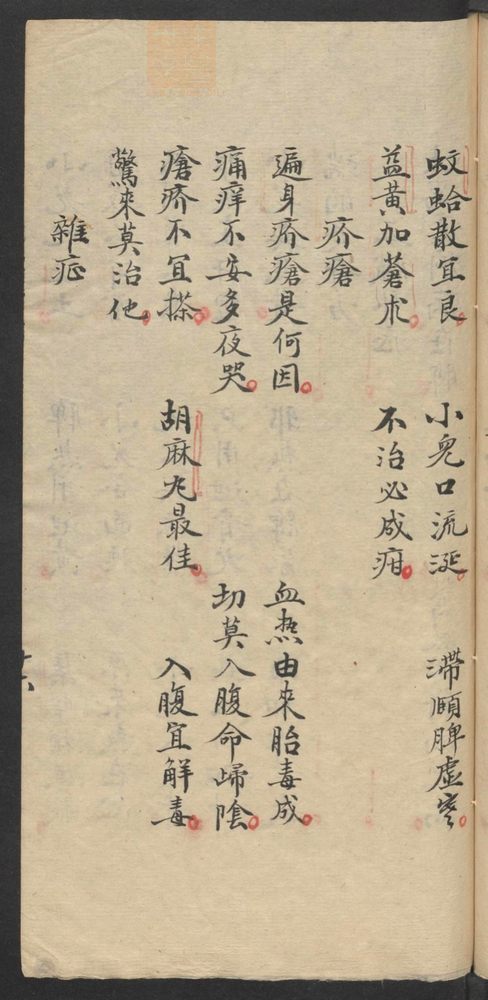 蚊蛤散宜良 小兒口流涎 滯頤脾虛寒
益黃加蒼朮 不治必成疳
疥瘡
遍身疥瘡是何因 血热由來胎毒成
痛痒不安多夜哭 切莫入腹命歸陰
瘡疥不宜搽 胡麻丸最佳 入腹宜解毒
驚來莫治他
雜症